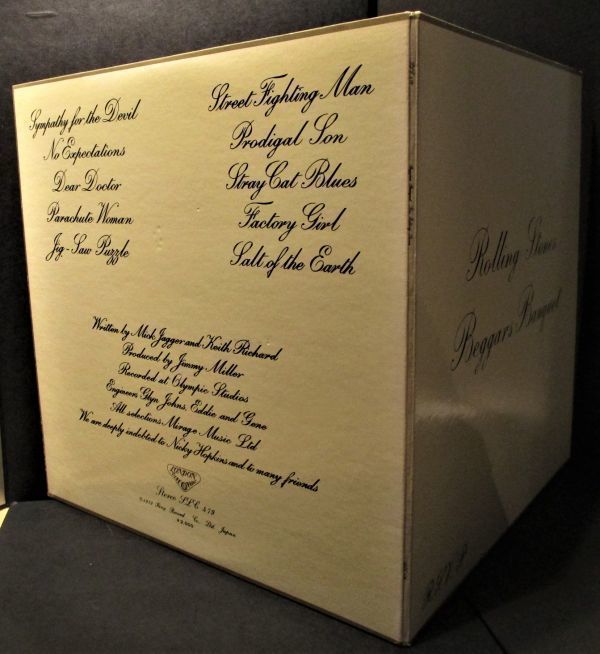 Sympathy for the Devil
No Expectations
Dear Doctor
Parachute Woman
Jig-Saw Puzzle
Street Fighting Man
Prodigal Son
Stray Cat Blues
Factory Girl
Salt of the Earth
Written by Mick Jagger and Keith Richard
Produced by Jimmy Miller
Recorded at Olympic Studios
Engineers Glyn Johns, Eddie and Gene
All selections Mirage Music Ltd
We are deeply indebted to Nicky Hopkins and to many friends
LONDON
Stereo SLC 473
King Record Co. Ltd. Japan
¥2,000
Rolling Stones
Beggars Banquet
R.S.V.P.